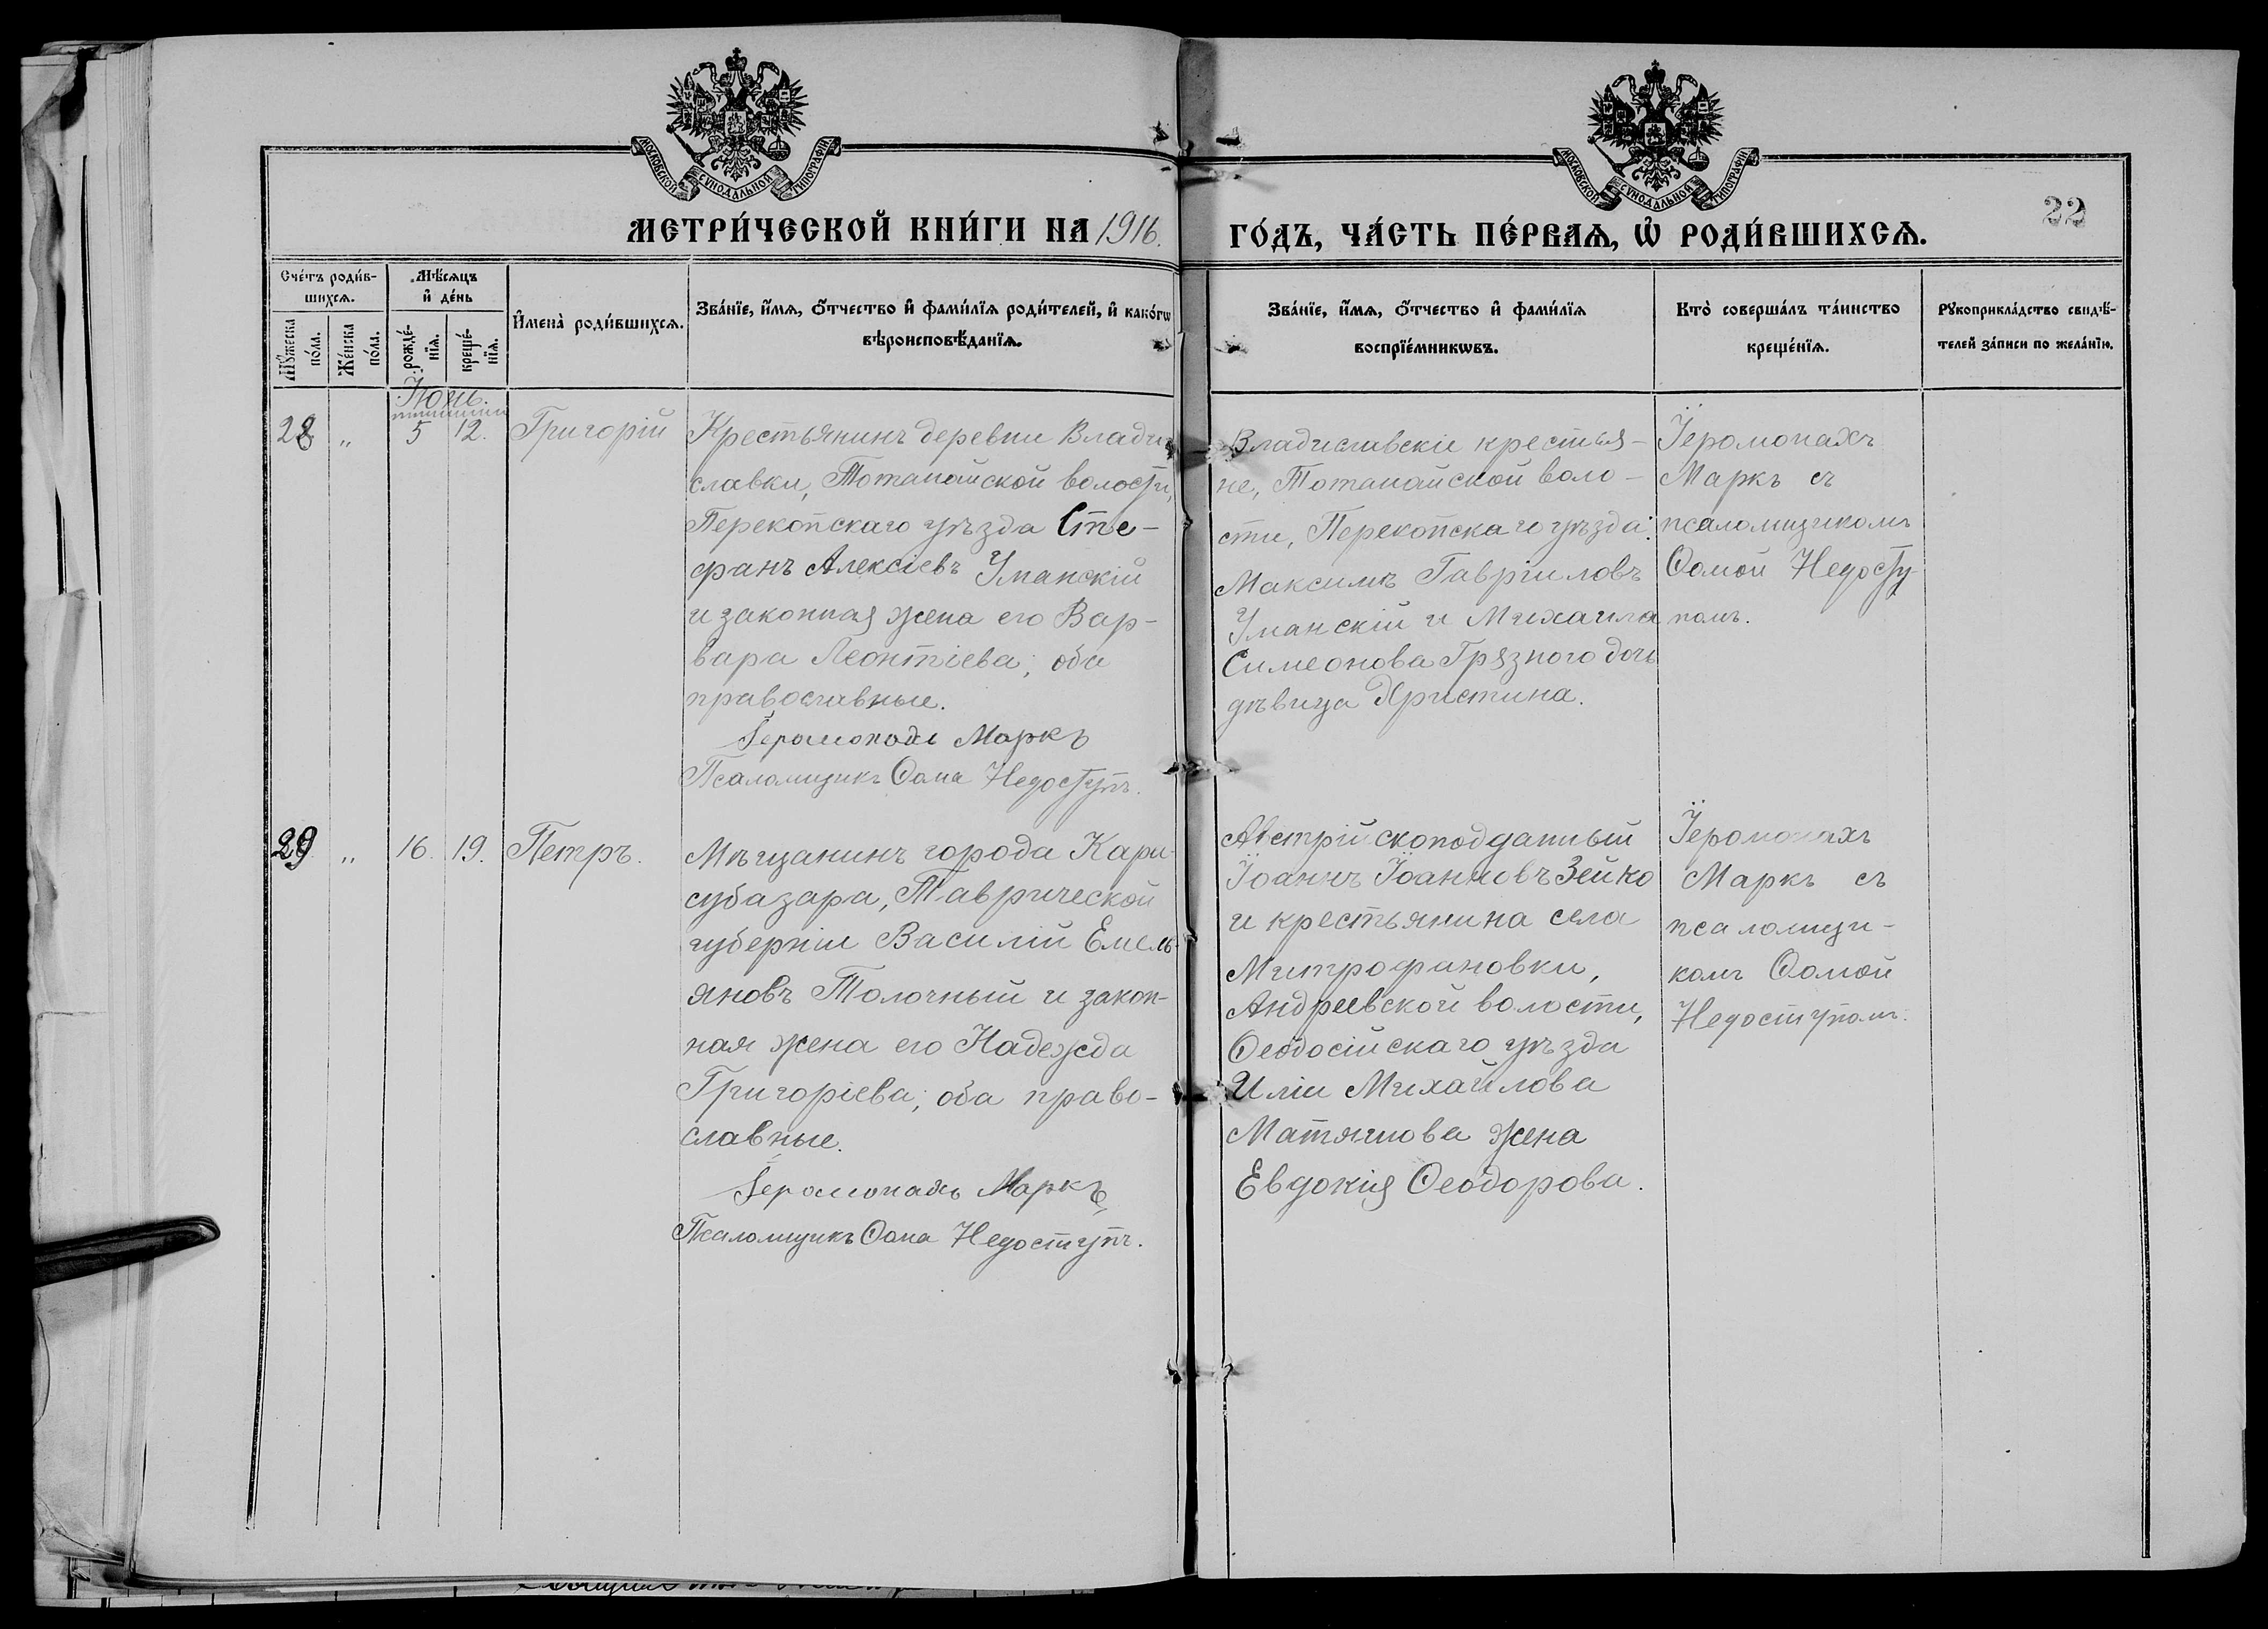 МОСКОВСКОЙ СѴНОДАЛЬНОЙ ТИПОГРАФІИ
МОСКОВСКОЙ СѴНОДАЛЬНОЙ ТИПОГРАФІИ
МЕТРИ́ЧЕСКОЙ КНИ́ГИ НА 1916.
ГО́ДЪ, ЧА́СТЬ ПЕ́РВАѦ, Ѡ҆ РОДИ́ВШИХСѦ.
22
Сче́тъ роди́в-
шихсѧ.
Мꙋ́жеска
по́ла.
Же́нска
по́ла.
Мѣ́сѧцъ
и҆ де́нь
рожде́-
нїѧ.
креще́-
нїѧ.
И҆мена̀ роди́вшихсѧ.
Зва́нїе, и҆́мѧ, ѻ҆́тчество и҆ фами́лїѧ роди́телей, и҆ како́гѡ
вѣроисповѣ́данїѧ.
Зва́нїе, и҆́мѧ, ѻ҆́тчество и҆ фами́лїѧ
воспрїе́мникѡвъ.
Кто̀ соверша́лъ та́инство
креще́нїѧ.
Рꙋкоприкла́дство свидѣ́-
телей за́писи по жела́нїю.
Іюнь.
28 " 5 12. Григорій
Крестьянинъ деревни Влади-
славки, Тотанайской волости,
Перекопскаго уѣзда Сте-
фанъ Алексіевъ Уманскій
и законная жена его Вар-
вара Леонтіева; оба
православные.
Іеромонахъ Маркъ
Псаломщикъ Ѳома Недоступъ.
Владиславскіе крестья-
не, Тотанайской воло-
сти, Перекопскаго уѣзда:
Максимъ Гавріиловъ
Уманскій и Михаила
Симеонова Грязного дочь
дѣвица Христина.
Іеромонахъ
Маркъ съ
псаломщикомъ
Ѳомой Недосту-
помъ.
29 " 16. 19. Петръ.
Мѣщанинъ города Кара-
субазара, Таврической
губерніи Василій Емель-
яновъ Толочный и закон-
ная жена его Надежда
Григоріева; оба право-
славные.
Іеромонахъ Маркъ
Псаломщикъ Ѳома Недоступъ.
Австрійскоподданный
Іоаннъ Іоанновъ Зейко
и крестьянина села
Митрофановки,
Андреевской волости,
Ѳеодосійскаго уѣзда
Иліи Михайлова
Матяшова жена
Евдокія Ѳеодорова.
Іеромонахъ
Маркъ съ
псаломщи-
комъ Ѳомой
Недоступомъ.